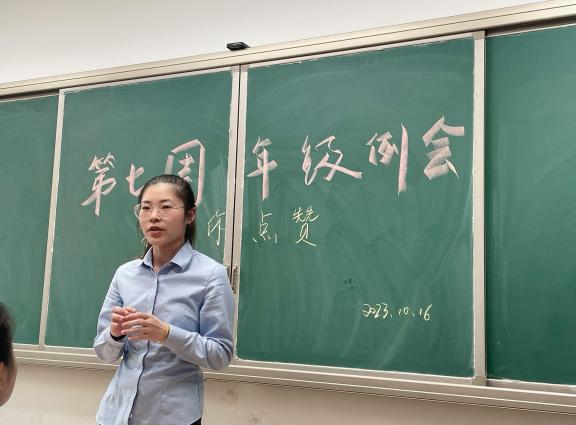 第七周年级例会
你点赞
2023.10.16